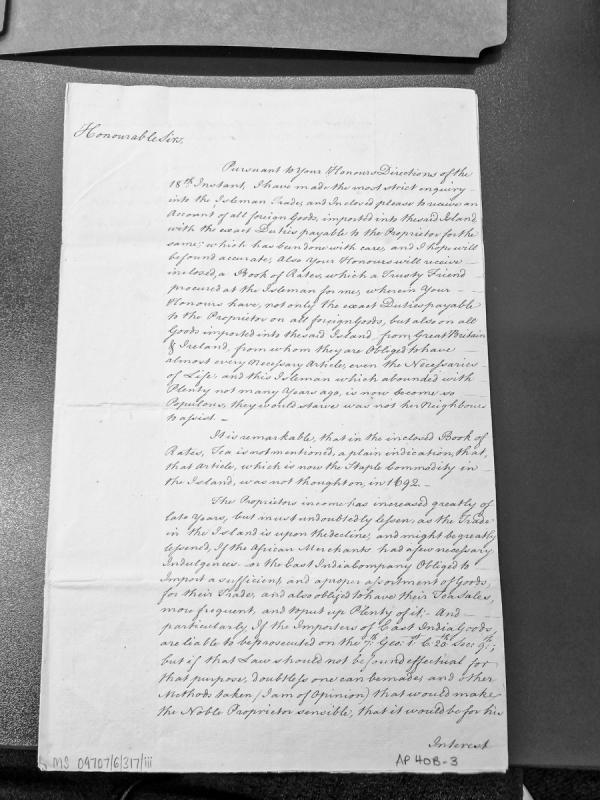 Honourable Sirs,
Pursuant to Your Honours Directions of the
18th Instant, I have made the most strict enquiry
into the Isleman Trade, and Inclosed please to receive an
Account of all foreign Goods, imported into the said Island
with the exact Duties payable to the Proprietor for the
same; which has been done with care, and I hope will
be found accurate; Also Your Honours will receive
inclosed, a Book of Rates, which a Trusty Friend
procured at the Isleman for me, wherein Your
Honours have, not only the exact Duties payable
to the Proprietor on all foreign Goods, but also on all
Goods imported into the said Island from Great Britain
& Ireland, from whom they are Obliged to have
almost every Necessary Article, even the Necessaries
of Life, and this Isleman which abounded with
Plenty not many Years ago, is now become so
Populous, they would starve was not her Neighbours
to assist. –
It is remarkable, that in the inclosed Book of
Rates, Tea is not mentioned, a plain indication, that,
that Article, which is now the Staple Commodity in
the Island, was not thought on, in 1692 –
The Proprietors income has increased greatly of
late Years, but must undoubtedly lessen, as the Trade
in the Island is upon the decline, and might be greatly
lessen'd, If the African Merchants had a few necessary
Indulgences or the East India Company Obliged to
Import a sufficient, and a proper assortment of Goods,
for their Trade, and also obliged to have their Tea Sales,
more frequent, and to put up Plenty of it; - And
particularly If the Importers of East India Goods,
are liable to be prosecuted on the 7th Geo: 1st C. 20th Sec: 9th;
but if that Law should not be found effectual for
that purpose, doubtless one can be made; and other
Methods taken, (I am of Opinion) that would make
the Noble Proprietor sensible, that it would be for his
Interest
MS 09707/6/317/iii
AP 40B-3